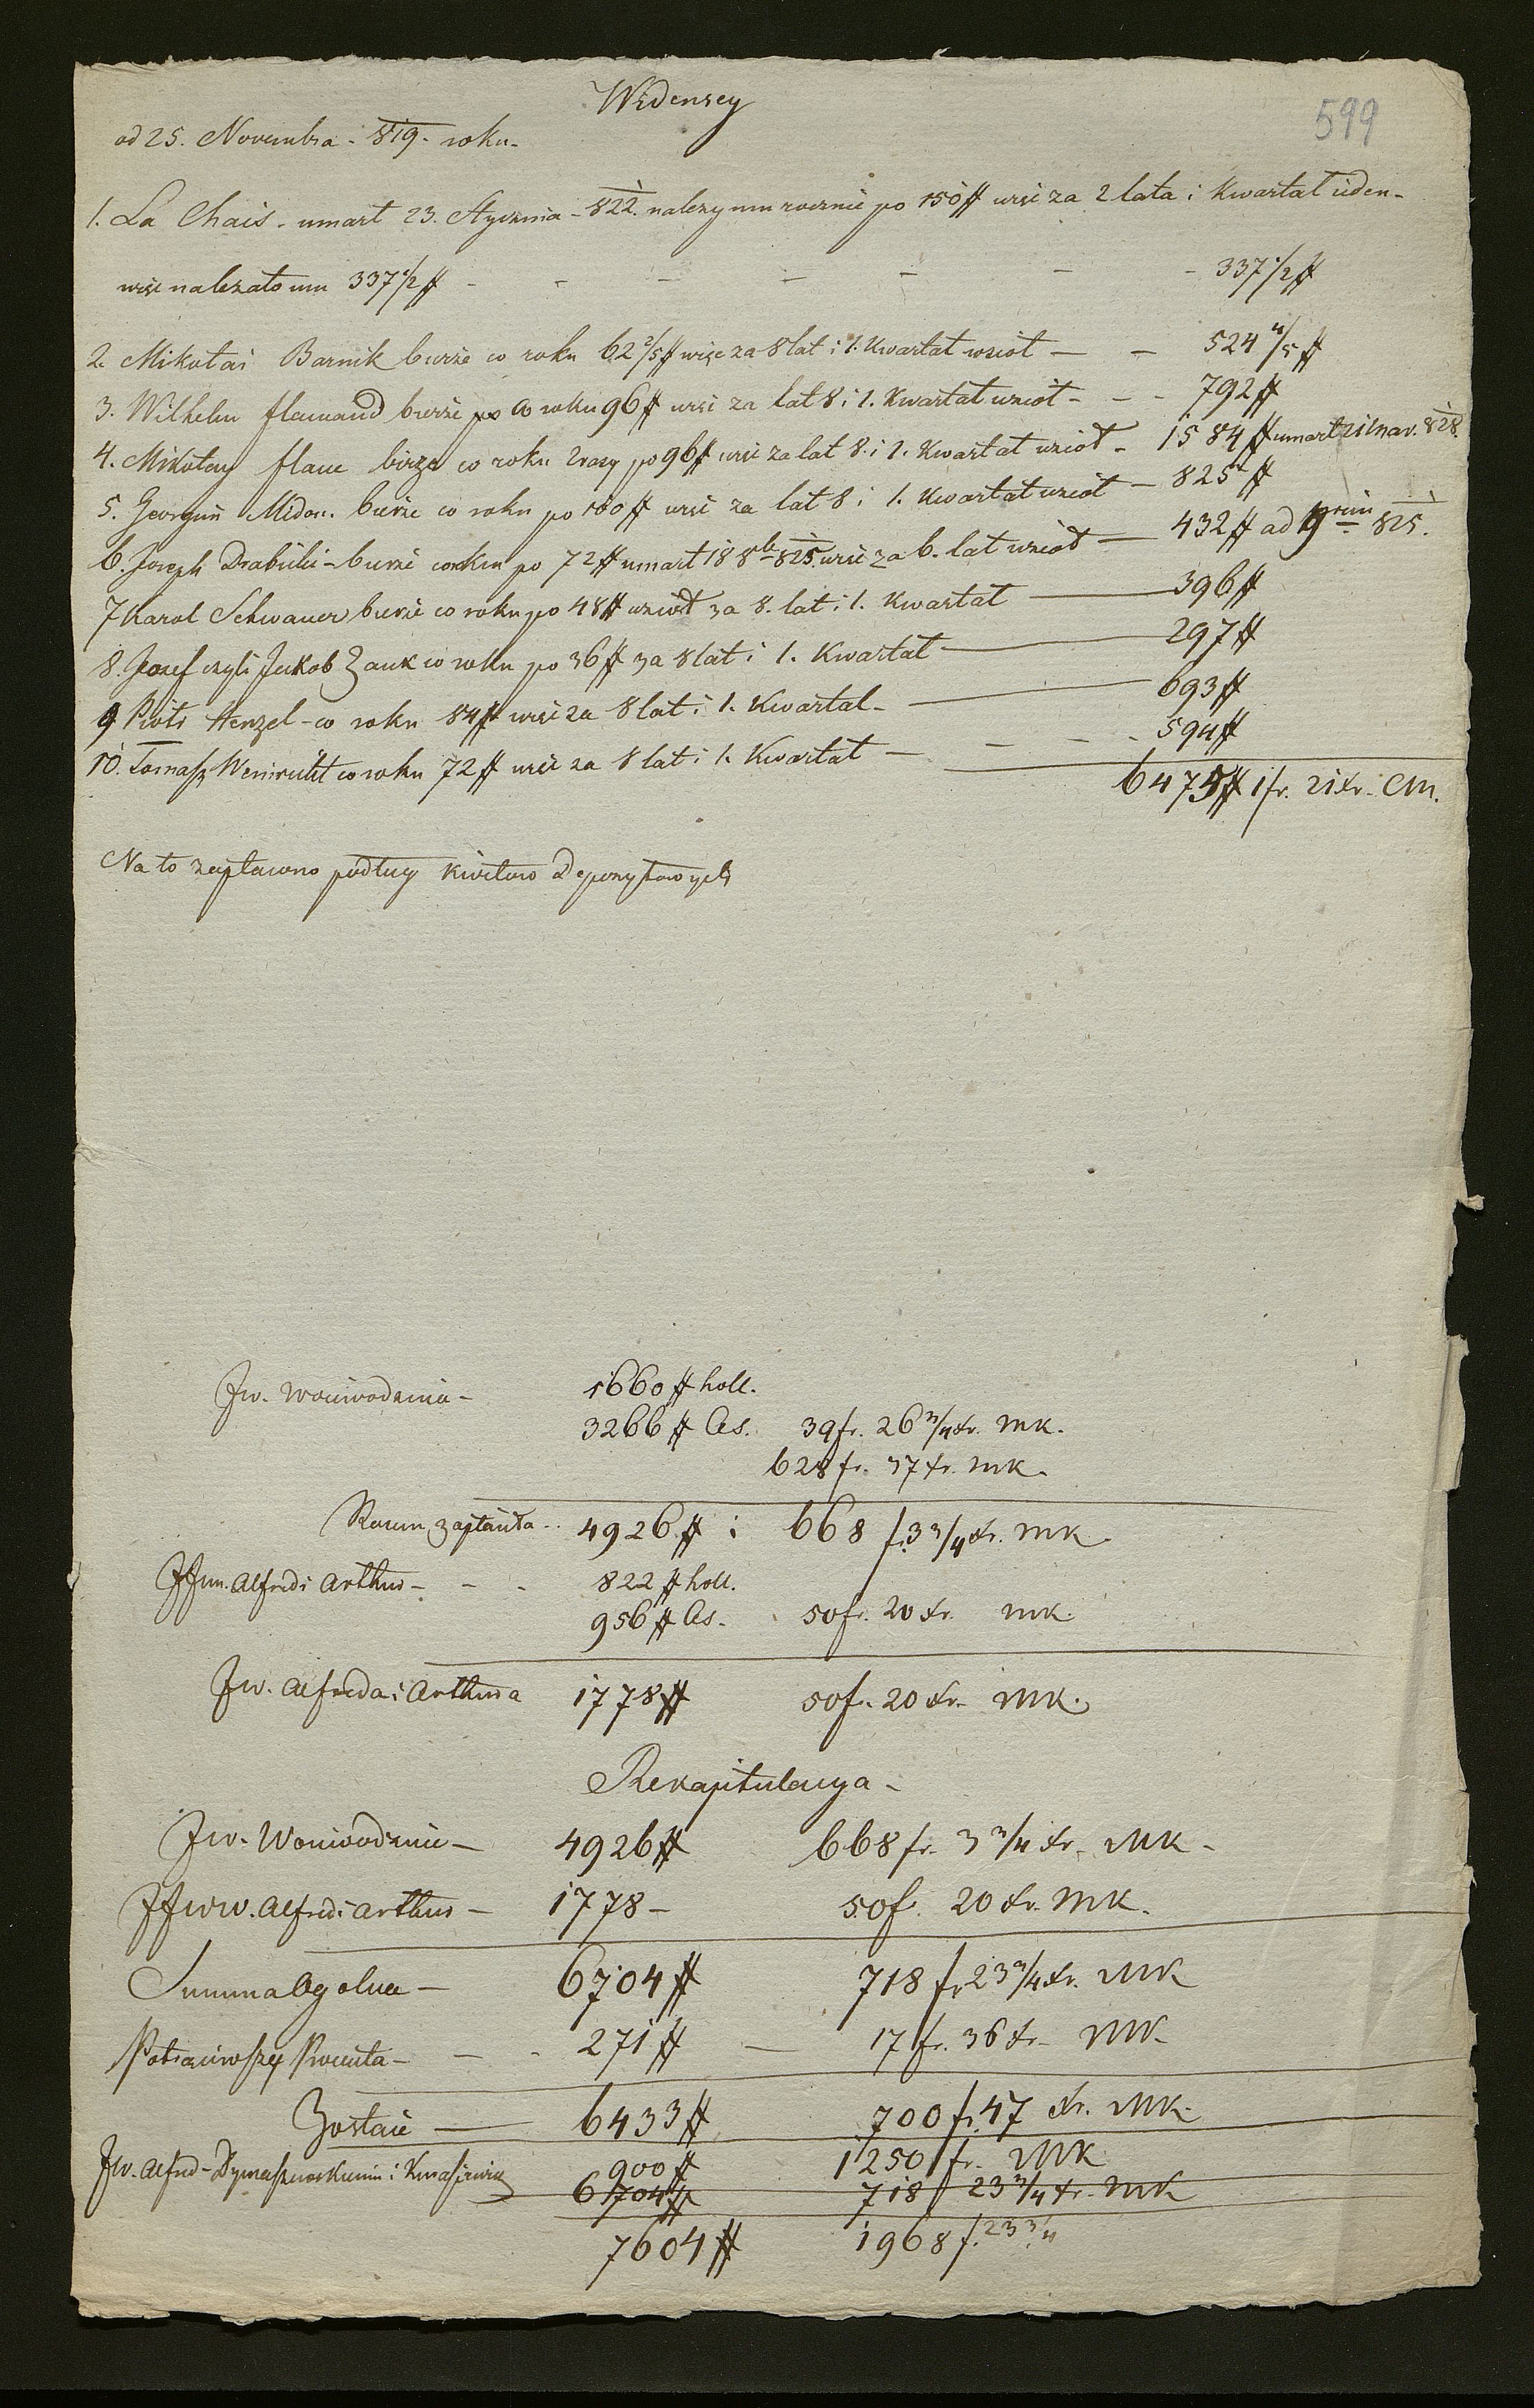 Widensey
599
od 25. Novembra - 819 - roku -
1. La Chais - umart 23. Stycznia - 822. nalezy mu rocznie po 150 # wiec za 2 lata i Kwartat ieden -
wiec nalezato mu 337 1/2 # - - - - - - - 337 1/2 #
2. Mikotai Barnik bierze co roku 62 2/5 # więc za 8 lat i 1. Kwartat wziot — - 524 4/5 #
3. Wilhelm flamand bierze co roku 96 # wiec za lat 8 i 1. Kwartat wziot - - - 792 #
4. Mikotay flame co roku 2 razy po 96 # wiec za lat 8. i 1. Kwartat wziot - 1584 # umart 828.
5. Midor. bierze co roku po 100 # wiec za lat 8 i 1. Kwartat wziot - 825 #
6. Joseph Drabicki - bierze co roku po 72 # umart 18 8b 825. wiec za 6. lat wziot — 432 # ad 825.
7 Karol Schwauer bierze co roku po 48 # wziot za 8. lat i 1. Kwartat — 396 #
8. Jozef czyli Jakob Zauk co roku po 36 # za 8 lat i 1. Kwartat — 297 #
9 Piotr Henzel - co roku 84 # wiec za 8 lat i 1. Kwartal - — 693 #
10. Tomasz co roku 72 # wiec za 8 lat i 1. Kwartat — - - - 594 #
6475 # 1 fr. 21 xr. CM.
Na to zaptacono podlug kwitow Depozytowych
Jw. Woiwodzina - 1660 # holl.
3266 # As. 39 fr. 26 3/4 xr. MK.
628 fr. 37 xr. MK.
Razem zaptacita - 4926 # i 668 fr. 3 3/4 xr. MK.
JJww. Alfred i Arthur - - - 822 # holl.
956 # As. 50 fr. 20 xr. MK.
Jw. Alfreda i Arthura 1778 # 50 fr. 20 xr. MK.
Rekapitulacya -
Jw. Woiwodzina - 4926 # 668 fr. 3 3/4 xr. MK -
JJww. Alfred i Arthur - 1778 - 50 f. 20 xr. MK.
Summa Ogolna - 6704 # 718 fr. 23 3/4 xr. MK
Potraciwszy Procenta - - - 271 # — 17 fr. 36 xr. MK -
Zostaie — 6433 # 700 fr. 47 xr. MK.
Jw. Alfred - i 900 # 1250 fr. MK
6704 # 718 f 23 3/4 xr. MK
7604 # 1968 f. 23 3/4